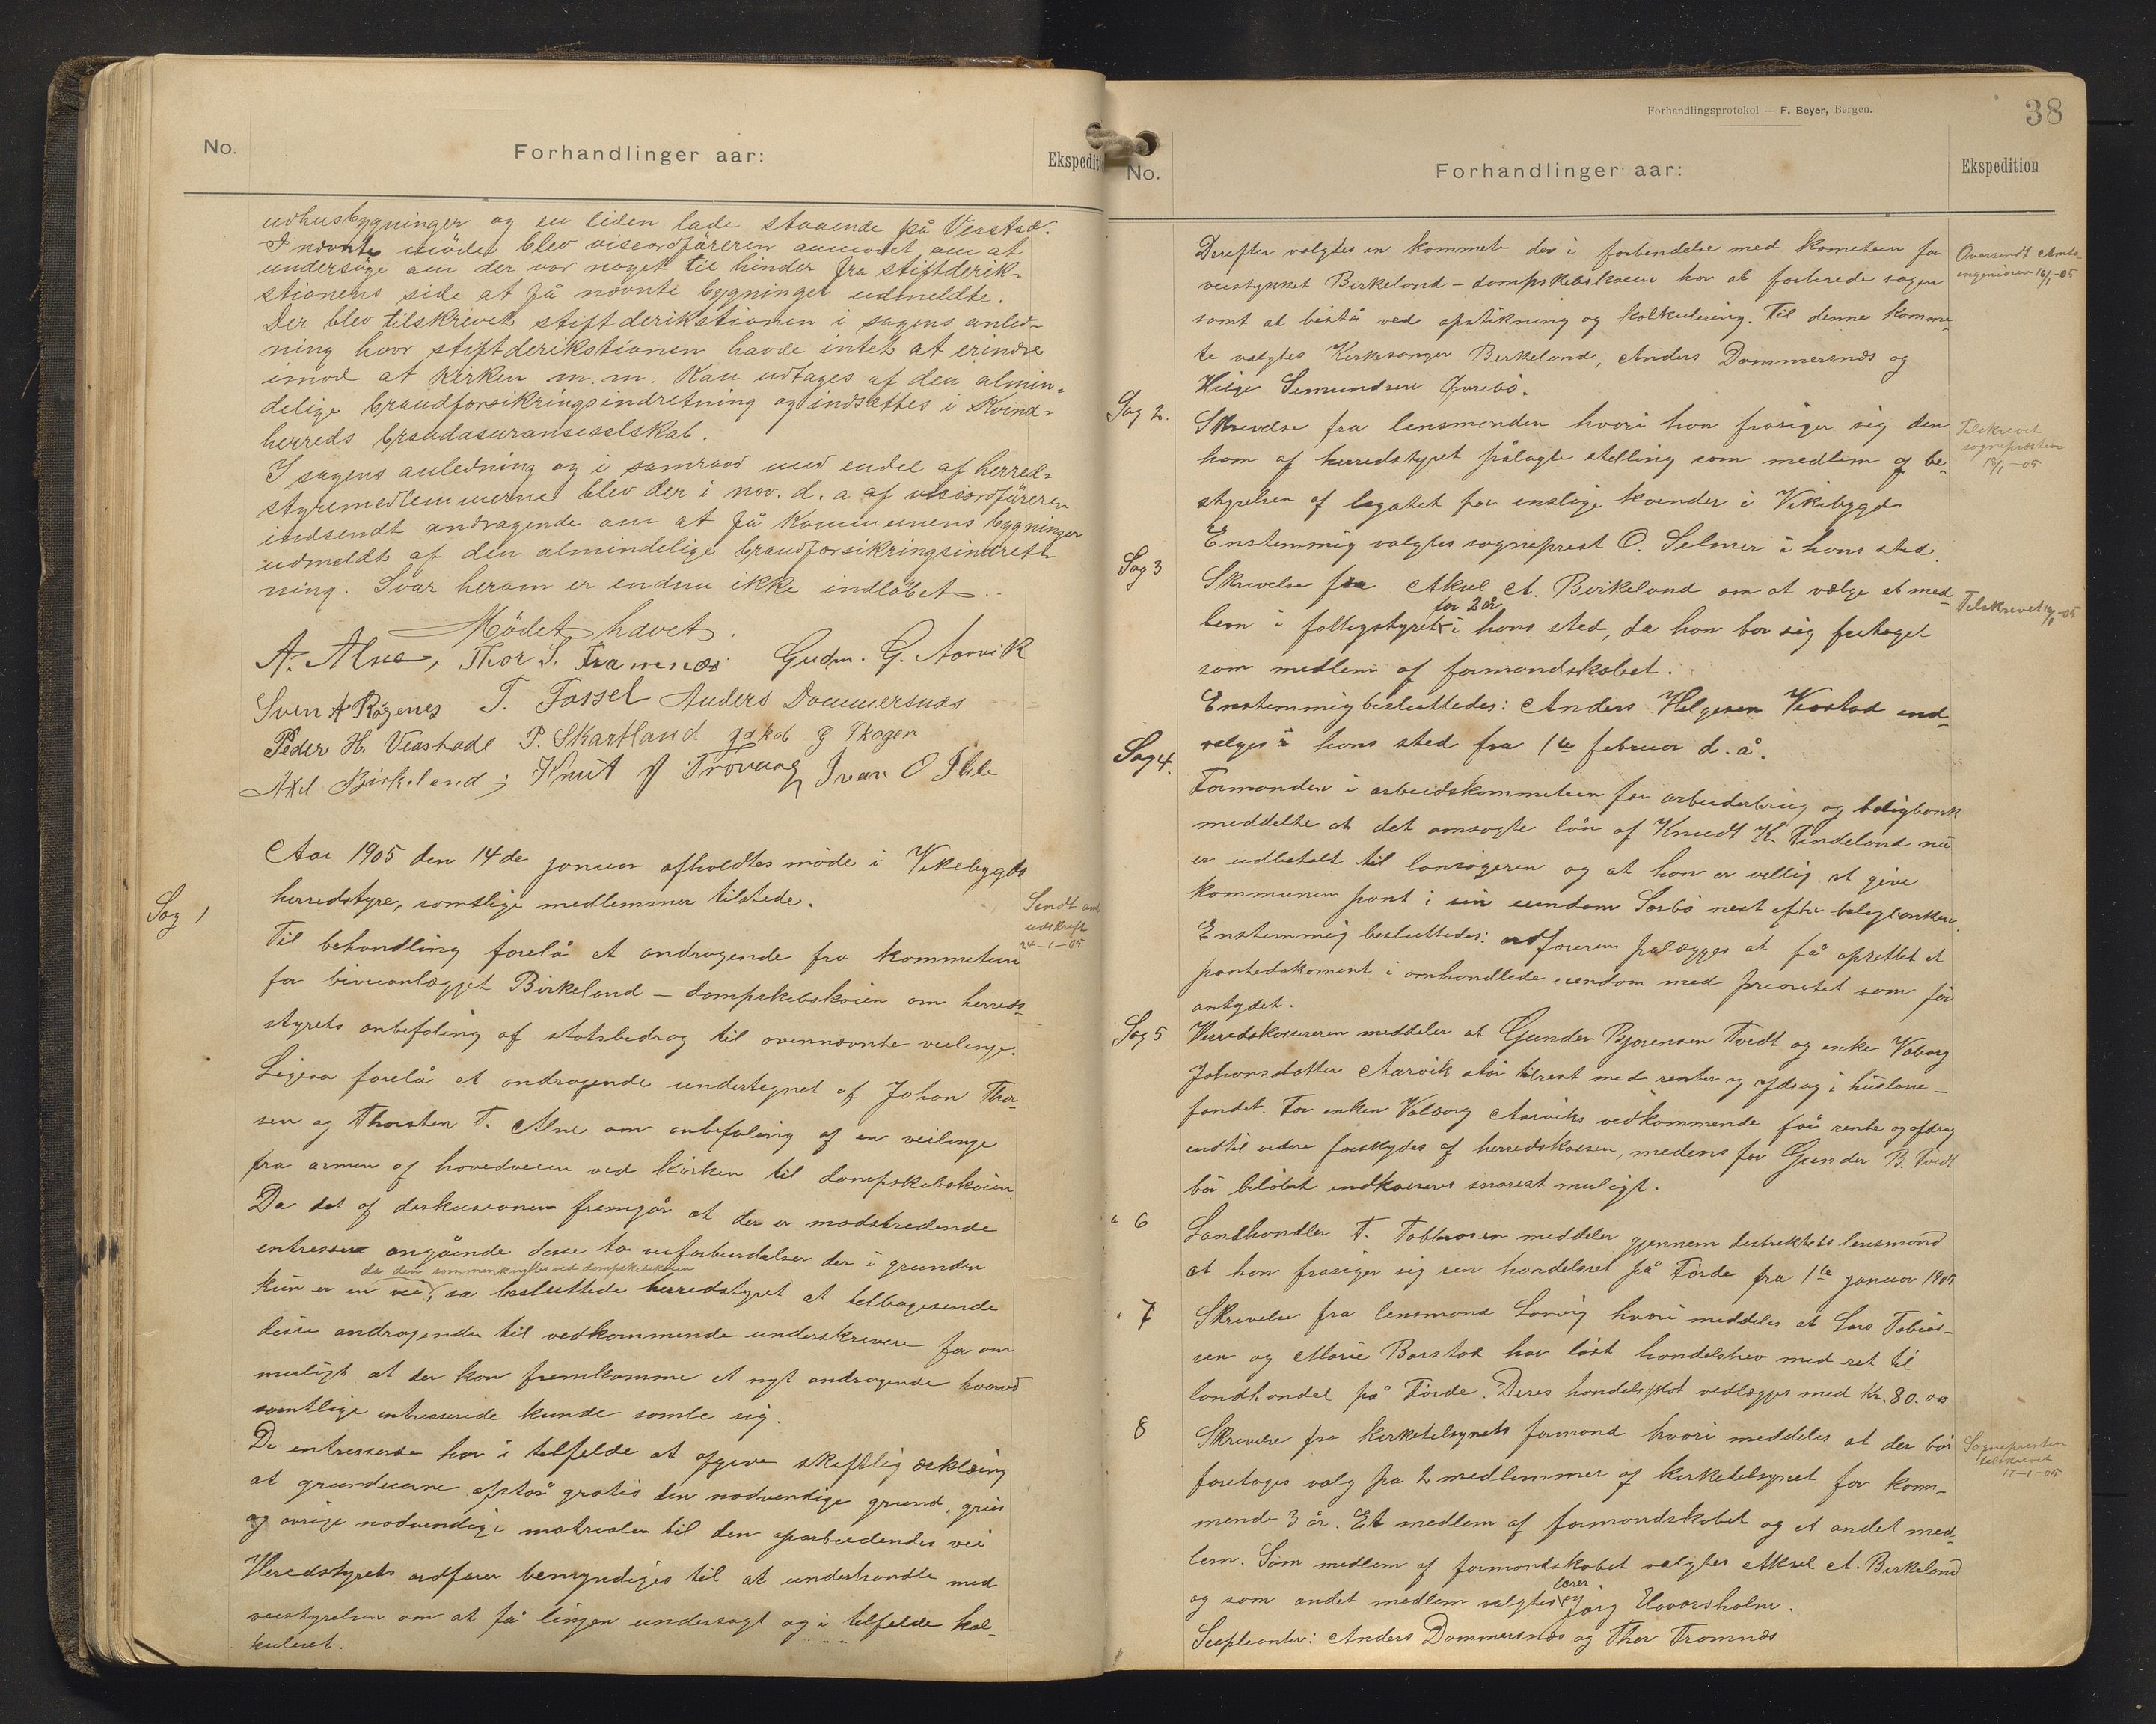 No.
Forhandlinger aar:
Ekspediti
udhusbygninger og en liden lade staaende på Vesstad.
I nævnte møde blev viseordføreren anmodet om at
undersøge om der var noget til hinder fra stiftderik-
stionens side at få nævnte bygninger udmeldte.
Der blev tilskrevet stiftderikstionen i sagens anled-
ning hvor stiftderikstionen havde intet at erindre
imod at kirken m.m. kan udtages af den almin-
delige brandforsikringsendretning og indsættes i Kvind-
herreds brandasuranseselskab.
I sagens anledning og i samraad med endel af herred-
styremedlemmerne blev der i nov. d. a af viseordføreren
indsendt andragende om at få kommunens bygninger
udmeldt af den almindelige brandforsikringsindrett-
ning. Svar herom er endnu ikke indløbet.
Mødet hævet.
A. Alne, Thor S. Framnæs. Gudm. G. Aarvik
Sven A Røgenes T. Fossel Anders Dommersnæs
Peder H. Vesstadt P. Skartland Jakob G Skogen
Axel Birkeland; Knut J Trovaag Ivar O
Aar 1905 den 14de januar afholdtes møde i Vikebygds
herredstyre, samtlige medlemmer tilstede.
Sag 1
Sendt
udskrift
24-1-05
Til behandling forelå et andragende fra kommeteen
for veianlægget Birkeland – dampskibskaien om herreds-
styrets anbefaling af statsbidrag til ovennævnte veilinje.
Ligesaa forelå et andragende undertegnet af Johan Thor-
sen og Thorsten T. Alne om anbefaling af en veilinje
fra armen af hovedveien ved kirken til dampskibskaien.
Da det af deskusionen fremgår at der er modstredende
entresser angående disse to veiforbindelser der i grunden
da den sammenknyttes ved dampskibskaien
kun er en vei, sa besluttede herredstyret at tilbagesende
disse andragender til vedkommende underskrivere for om
muligt at der kan fremkomme et nyt andragende hvorved
samtlige entresserede kunde samle sig.
De entresserde har i tilfelde at afgive skriftlig erklæring
at grundeierne afstår gratis den nødvendige grund, grus
og øvrige nødvendige matrealer til den oparbeidendes vei
Herredstyrets ordfører bemyndiges til at underhandle med
veistyrelsen om at få linjen undersøgt og i tilfelde kal-
kuleret.
Forhandlingsprotokol — F. Beyer, Bergen.
38
No.
Forhandlinger aar:
Ekspedition
Derefter valgtes en kommete der i forbindelse med kometeen for
veistykket Birkeland – dampskibskaien har at forberede sagen
samt at bistå ved opstikning og kalkulering. Til denne komme-
te valgtes Kirkesanger Birkeland, Anders Dommersnæs og
Helge Simundsen Øvrebø.
Oversendt Amts-
ingeniøren 16/1-05
Sag 2.
Skrivelse fra lensmanden hvori han frasiger sig den
ham af herredstyret pålagte stelling som medlem af be-
styrelsen af legatet for enslige kvinder i Vikebygd
Enstemmig valgtes sogneprest O. Selmer i hans sted.
Tilskrevet
sognepræsten
18/1-05
Sag 3
Skrivelse fra Aksel A. Birkeland om at vælge et med-
for 2 år
lem i fattigstyret i hans sted, da han bør sig fritaget
som medlem af formandskabet.
Enstemmig besluttedes: Anders Helgesen Vesstad ind-
vælges i hans sted fra 1ste februar d. å.
Tilskrevet 18/1-05
Sag 4.
Formanden i arbeidskommeteen for arbeiderbrug og boligbank
meddelte at det omsøgte lån af Knudt K. Tindeland nu
er udbetalt til lånsøgeren og at han er villig at give
kommunen pant i sin eiendom Sørbø nest efter boligbanken.
Enstemmig besluttedes: ordføreren pålægges at få oprettet et
pantedokoment i omhandlede eiendom med prioritet som før
antydet.
Sag 5
Herredskasereren meddeler at Gunder Bjørensen Tvedt og enke Valborg
Johansdatter Aarvik står tilrest med renter og afdrag i huslåne-
fondet. For enken Valborg Aarviks vedkommende får rente og afdrag
indtil videre forskydes af herredskassen, medens for Gunder B. Tvedt
bør beløbet indkasseres snarest muligt.
" 6
Landhandler T. Tobbiasen meddeler gjennem destrektets lensmand
at han frasiger sig sin handelsret på Førde fra 1ste januar 1905
" 7
Skrivelse fra lensmand Larvig hvori meddeles at Lars Tobias-
sen og Marie Barstad har løst handelsbrev med ret til
landhandel på Førde. Deres handelsskat vedlægges med Kr. 80.00
8
Skrivelse fra kirketilsynets formand hvori meddeles at der bør
foretages valg på 2 medlemmer af kirketilsynet for kom-
mende 3 år. Et medlem af formandskabet og et andet med-
lem. Som medlem af formandskabet valgtes Aksel A. Birkeland
lærer
og som andet medlem valgtes Jørg Haavarsholm.
Supleanter: Anders Dommersnæs og Thor Framnæs
Sognepresten
tilskrevet
17-1-05